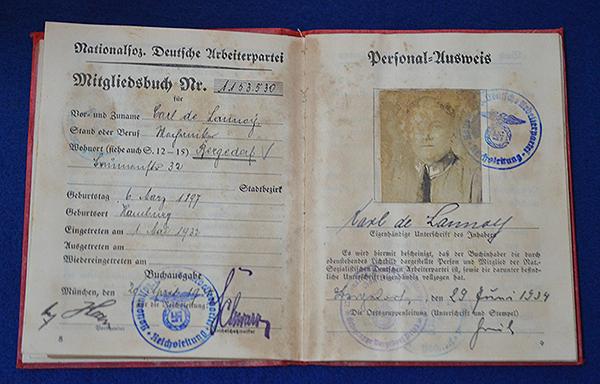 Nationalsoz. Deutsche Arbeiterpartei
Mitgliedsbuch Nr. 1153530
für
Vor- und Zuname Carl de Lannoy
Stand oder Beruf Mechaniker
Wohnort (siehe auch S. 12–15) Bergedorf
32
Stadtbezirk
Geburtstag 6. März 1897
Geburtsort Hamburg
Eingetreten am 1. Mai 1932
Ausgetreten am
Wiedereingetreten am
Buchausgabe
München, den
für die Reichsleitung:
Schwarz
Reichsschatzmeister
Reichsleitung
8
Personal-Ausweis
Reichsleitung
Karl de Lannoy
Eigenhändige Unterschrift des Inhabers
Es wird hiermit bescheinigt, daß der Buchinhaber die durch
obenstehendes Lichtbild dargestellte Person und Mitglied der Nat.-
Sozialistischen Deutschen Arbeiterpartei ist, sowie die darunter befind-
liche Unterschrift eigenhändig vollzogen hat.
Bergedorf, den 29 Juni 1934
Die Ortsgruppenleitung (Unterschrift und Stempel)
9